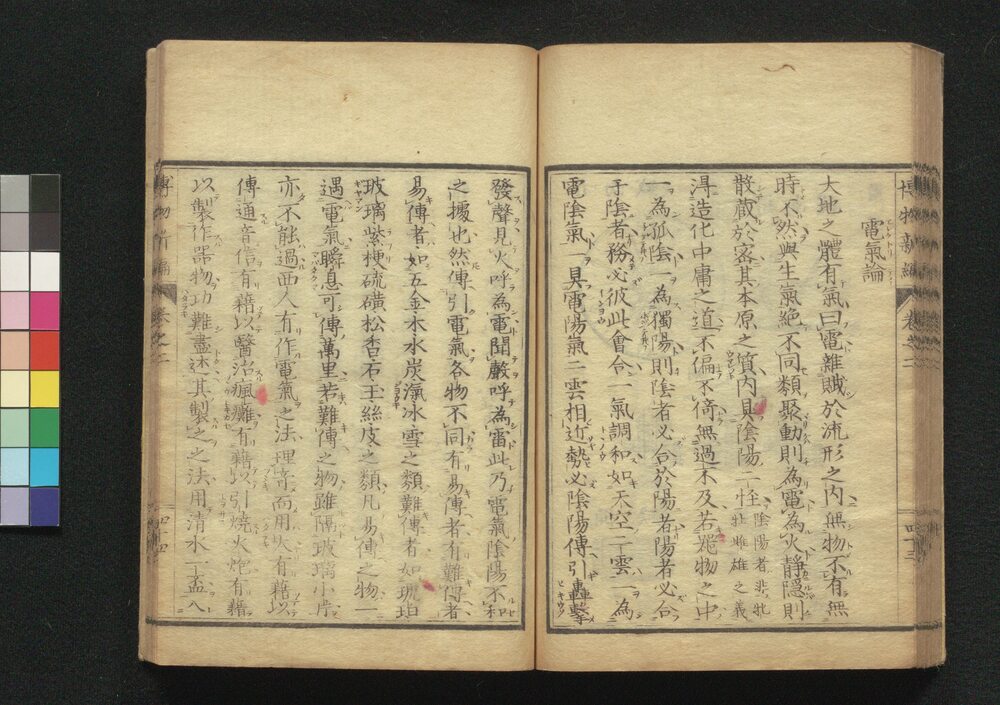 博物新編 卷之二 四十三
電氣論
大地之體有氣曰電雜賊於流形之内無物不有無
時不然與生氣絶不同類聚動則爲電爲火靜隱則
散藏於密其本原之質内具陰陽二性陰陽者非牝牡雌雄之義
淂造化中庸之道不偏不倚無過不及若一物之中
一爲孤陰一爲獨陽則陰者必合於陽者陽者必合
于陰者務必彼此會合二氣調和如天空二雲一爲
電陰氣一具電陽氣二雲相近勢必陰陽傳引轟擊
發聲見火呼爲電聞聲呼爲雷此乃電氣陰陽不和
之據也然傳引電氣各物不同有易傳者有難傳者
易傳者如五金木水炭濕冰雪之類難傳者如琥珀
玻璃紫梗硫磺松香石玉絲皮之類凡易傳之物一
遇電氣瞬息可傳萬里若難傳之物雖隔玻璃小片
亦不能過西人有作電氣之法理竒而用大有藉以
傳通音信有藉以醫治瘋癱有藉以引燒火炮有藉
以製作器物功難盡述其製之之法用清水一盂八
博物新編 卷之二 四十四